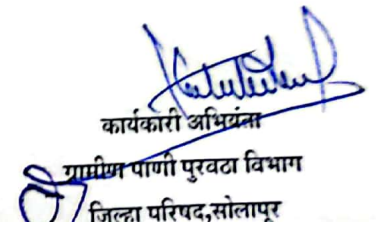 कार्यकारी अभियंता
ग्रामीण पाणी पुरवठा विभाग
जिल्हा परिषद,सोलापूर